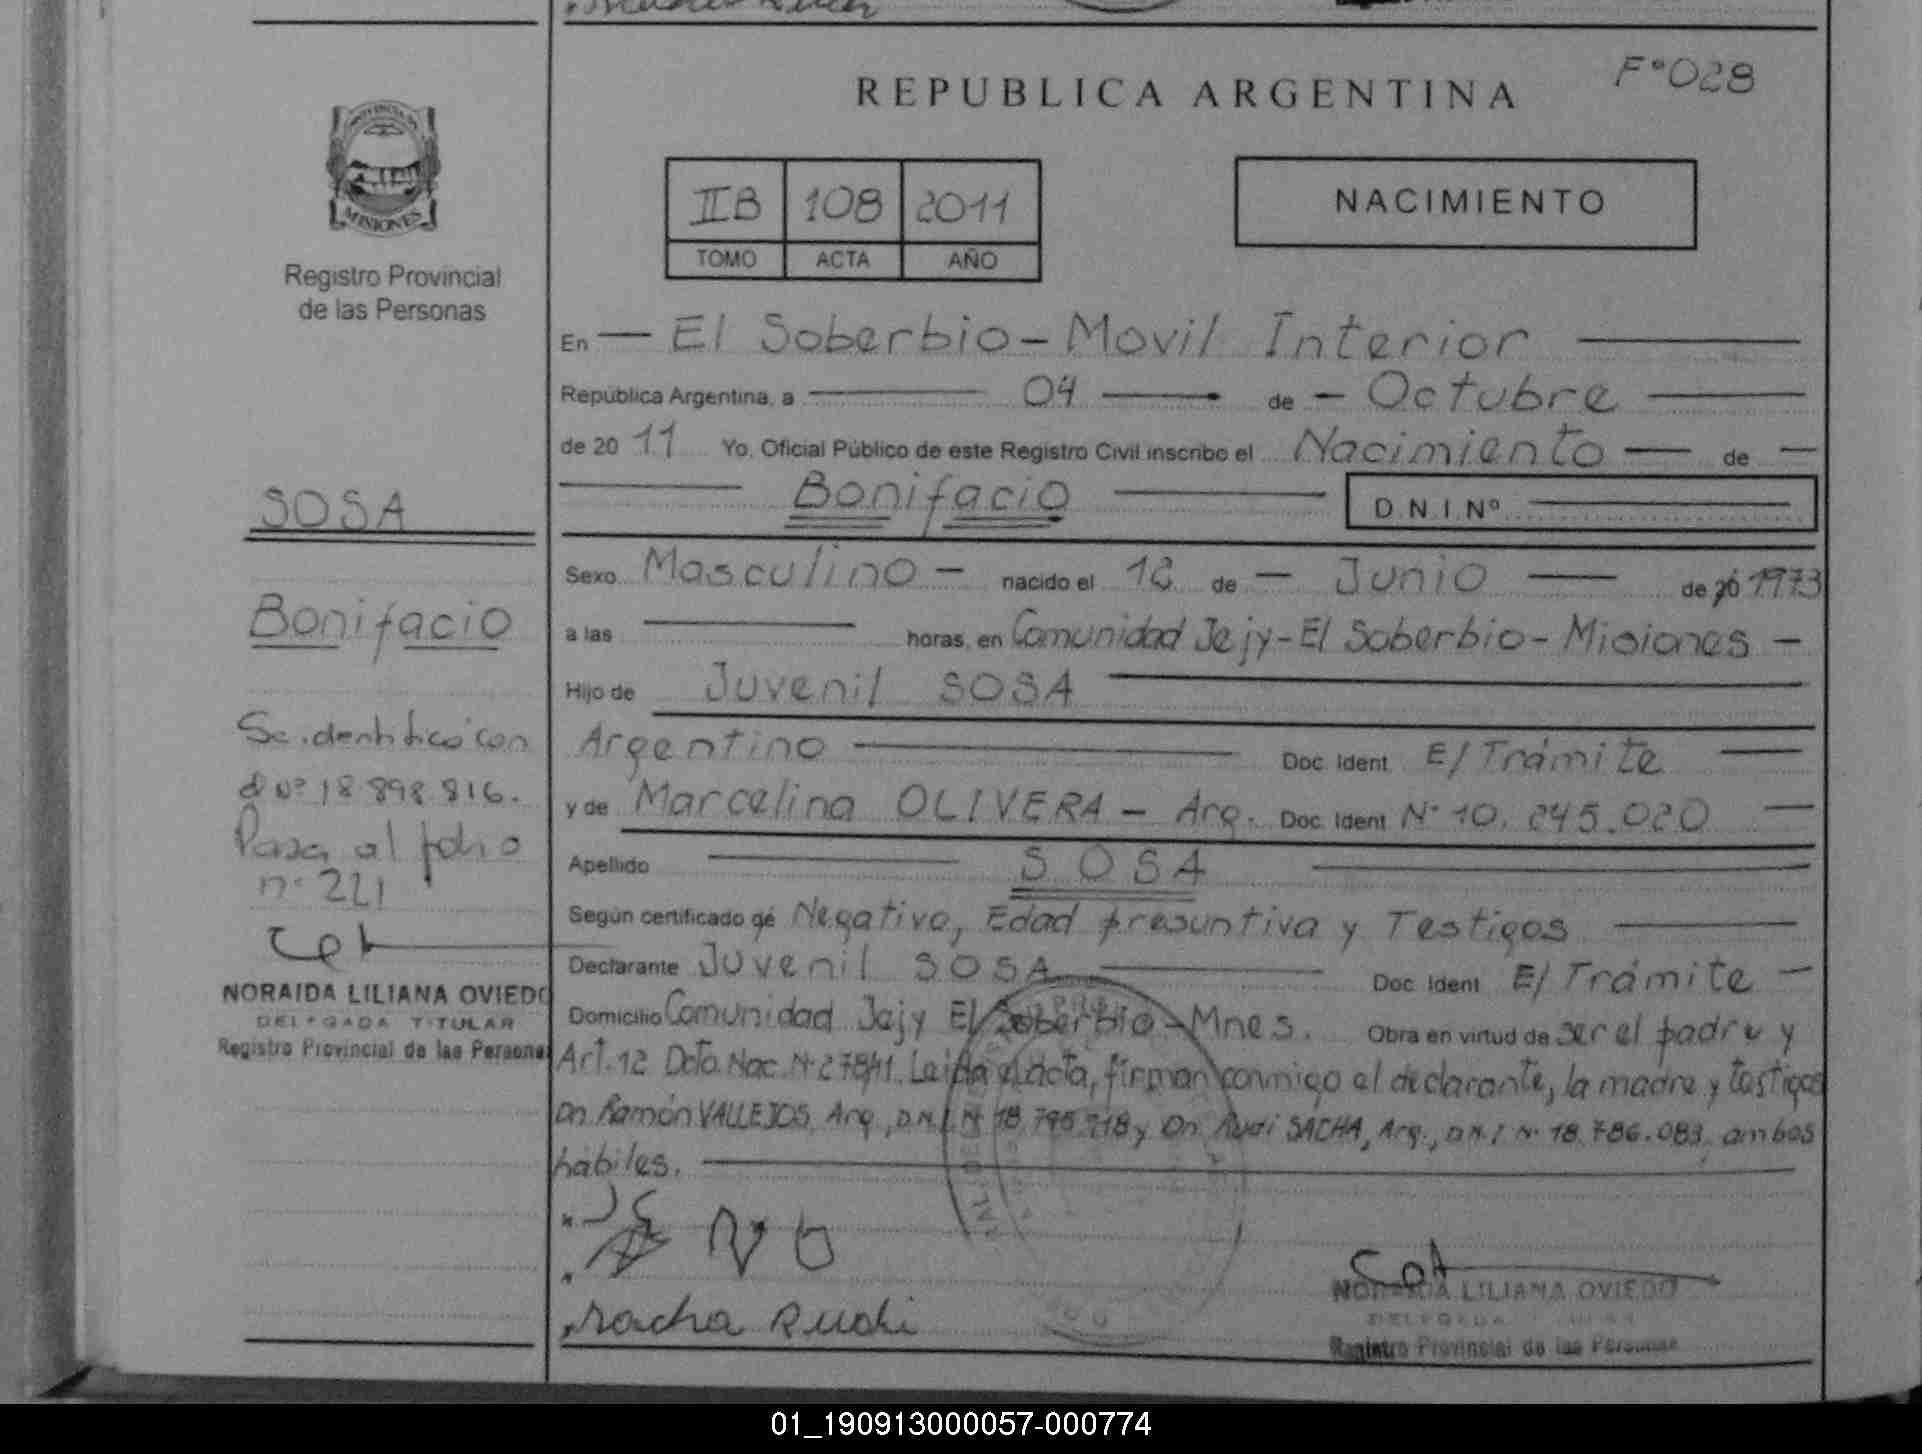 F° 028
REPUBLICA ARGENTINA
MISIONES
Registro Provincial
de las Personas
IIB 108 2011
TOMO ACTA AÑO
NACIMIENTO
En — El Soberbio - Movil Interior —
República Argentina, a — 04 — de — Octubre —
de 20 11 Yo, Oficial Público de este Registro Civil inscribo el Nacimiento — de —
— Bonifacio — D.N.I.Nº —
SOSA
Bonifacio
Sexo Masculino — nacido el 12 de — Junio — de 20 1973
a las — horas, en Comunidad Jejy - El Soberbio - Misiones —
Hijo de Juvenil SOSA —
Argentino — Doc. Ident. E/ Trámite —
y de Marcelina OLIVERA — Arg. Doc. Ident. N° 10.245.020 —
Apellido — SOSA —
Según certificado de Negativo, Edad presuntiva y Testigos —
Declarante Juvenil SOSA — Doc. Ident. E/ Trámite —
Domicilio Comunidad Jejy El Soberbio - Mnes. Obra en virtud de ser el padre y
Art. 12 Dcto. Nac. N° 278/11. Leida el acta, firman conmigo el declarante, la madre y testigos
Dn Ramón VALLEJOS, Arg., D.N.I. N° 18.795.718 y Dn Rudi SACHA, Arg., D.N.I N° 18.786.083, ambos
hábiles. —
Se identificó con
d nº 18 898 816.
Pasa al folio
nº 221
NORAIDA LILIANA OVIEDO
DELEGADA TITULAR
Registro Provincial de las Persona
Sacha Rudi
NORAIDA LILIANA OVIEDO
DELEGADA
Registro Provincial de las Personas
01_190913000057-000774